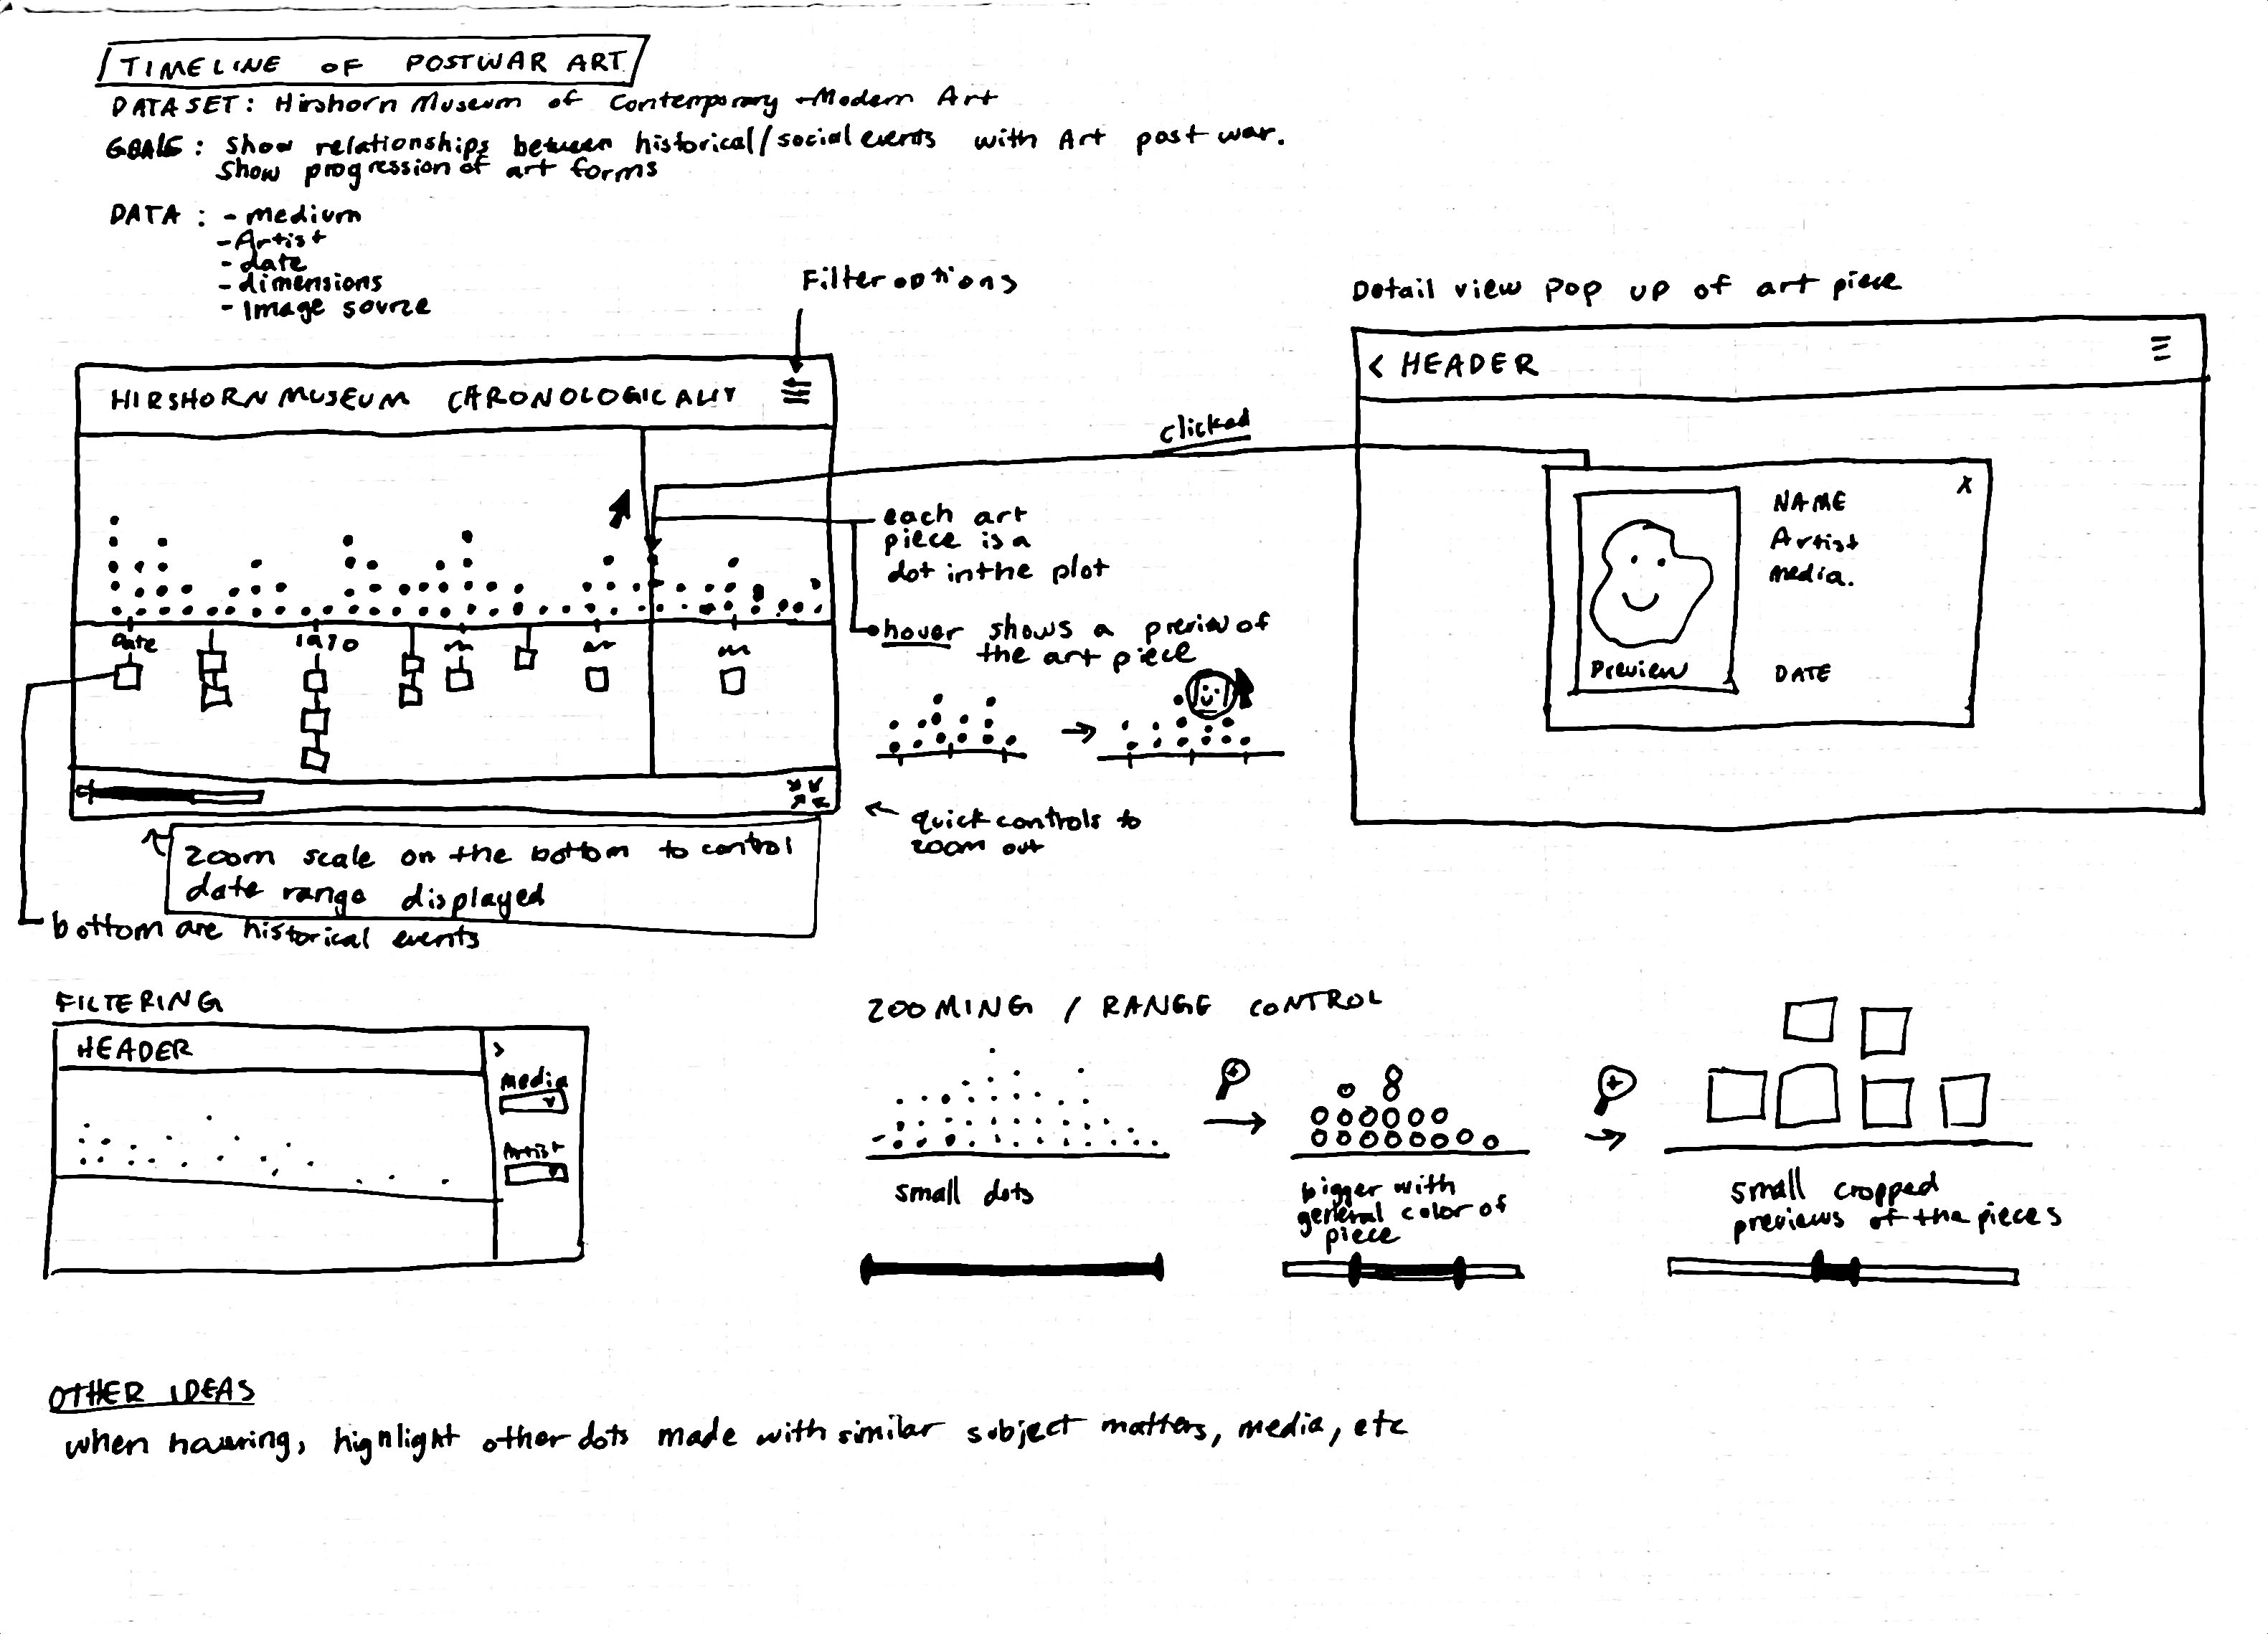 TIMELINE OF POSTWAR ART
DATASET: Hirshorn Museum of Contemporary + Modern Art
GOALS: Show relationships between historical/social events with Art post war.
Show progression of art forms
DATA : - medium
- Artist
- date
- dimensions
- Image source
Filter options
HIRSHORN MUSEUM CHRONOLOGICALLY
date
1970
each art
piece is a
dot in the plot
hover shows a preview of
the art piece
quick controls to
zoom out
zoom scale on the bottom to control
date range displayed
bottom are historical events
clicked
Detail view pop up of art piece
< HEADER
X
NAME
Artist
media.
Preview
DATE
FILTERING
HEADER
>
Media
Artist
ZOOMING / RANGE CONTROL
small dots
bigger with
general color of
piece
small cropped
previews of the pieces
OTHER IDEAS
when hovering, highlight other dots made with similar subject matters, media, etc